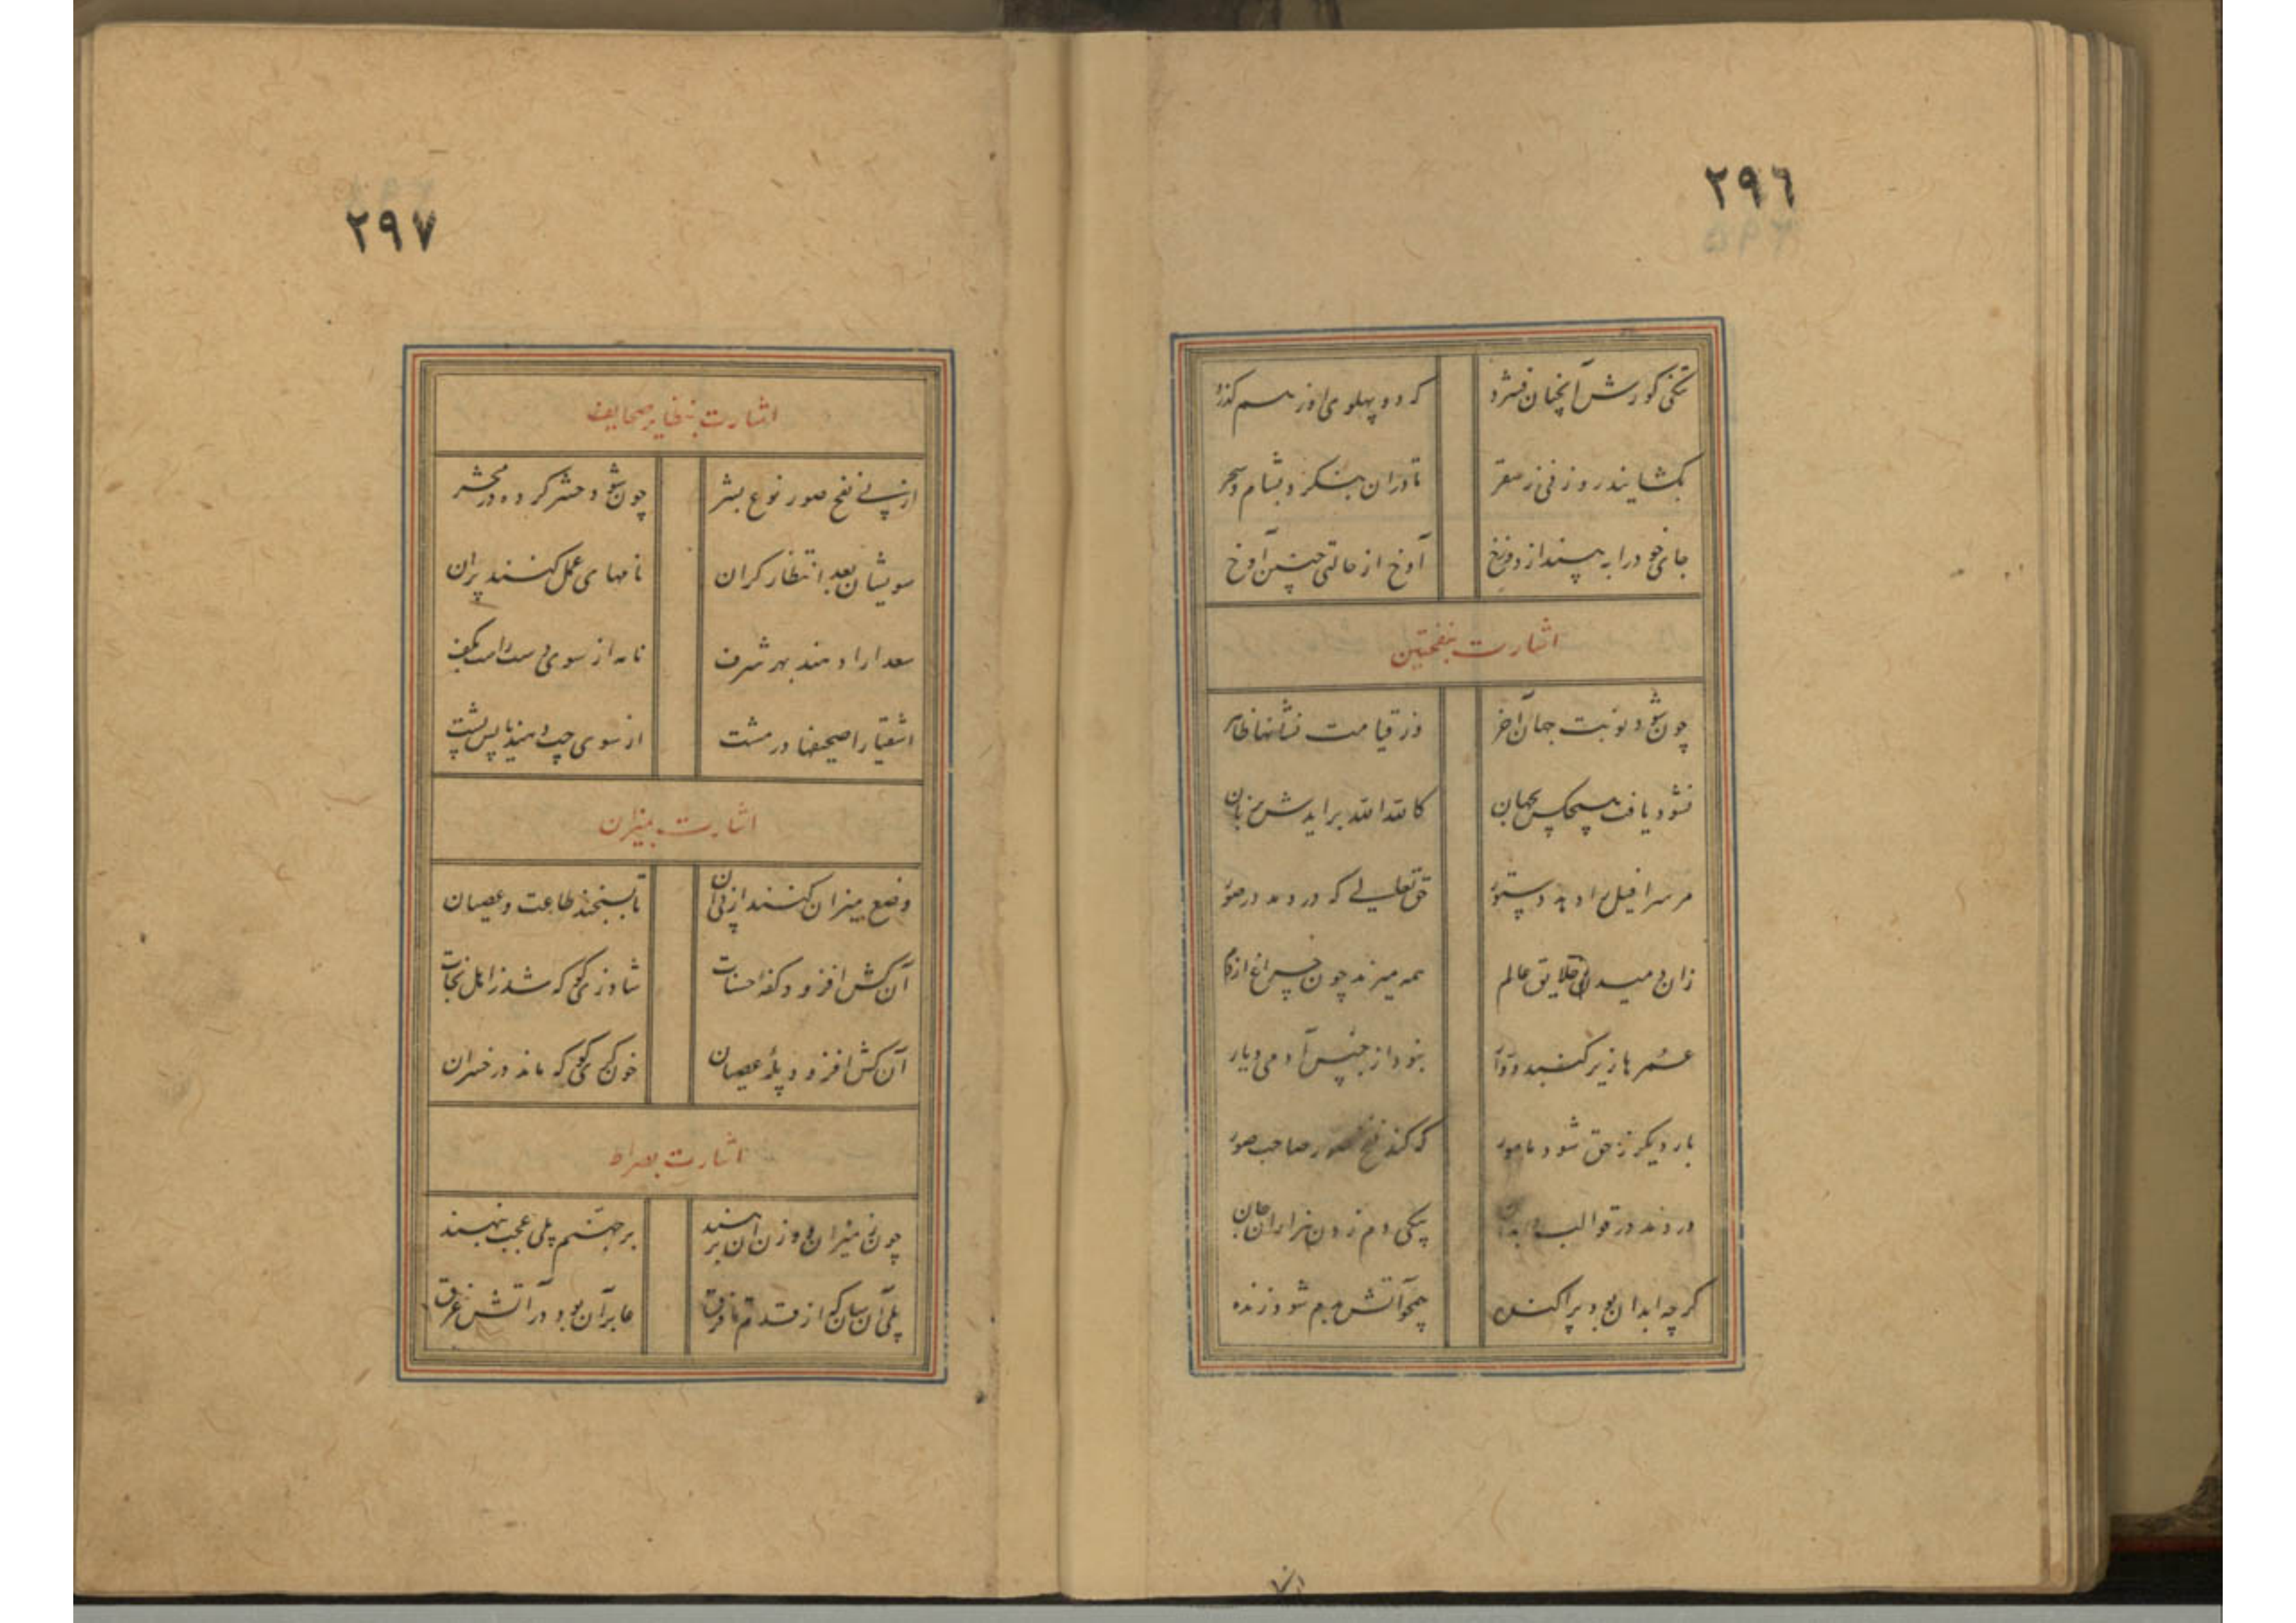 ٢٩٦
تنگی گورش آنچنان فشرد
که دو پهلوی او ز هم گذرد
بگشایند روزنی ز سقر
تا در آن بنگرد بشام و سحر
جای خود را به بیند از دوزخ
آوخ از حالتی چنین آوخ
اشارت بنفختین
چون شود نوبت جهان آخر
وز قیامت نشانها ظاهر
نشود یافت هیچکس بجهان
کالله الله برایدش ز زبان
مر سرافیل را دهد دستور
حق تعالی که در دمد در صور
زان دمیدن خلایق عالم
همه میرند چون چراغ از دم
عمرها زیر گنبد دوار
نبود از جنس آدمی دیار
بار دیگر ز حق شود مامور
که کند نفخ صور صاحب صور
در دمد در قوالب ابدان
بیکی دم زدن هزاران جان
گرچه ابدان بود پراکنده
همچو آتش بدم شود زنده
٢٩٧
اشارت بتطایر صحایف
از پی نفخ صور نوع بشر
چون شود حشر کرده در محشر
سویشان بعد انتظار کران
نامهای عمل کنند پران
سعدا را دهند بهر شرف
نامه از سوی دست راست بکف
اشقیا را صحیفها در مشت
از سوی چپ دهند یا پس پشت
اشارت بمیزان
وضع میزان کنند از پی آن
تا بسنجند طاعت و عصیان
آن کش افزود کفه حسنات
شاد زی گو که شد ز اهل نجات
آن کش افزود پله عصیان
خون گری گو که ماند در خسران
اشارت بصراط
چون ز میزان و وزن آن برهند
بر جهنم پلی عجب بنهند
پلی آن سان که از قدم تا فرق
عابر آن بود در آتش غرق